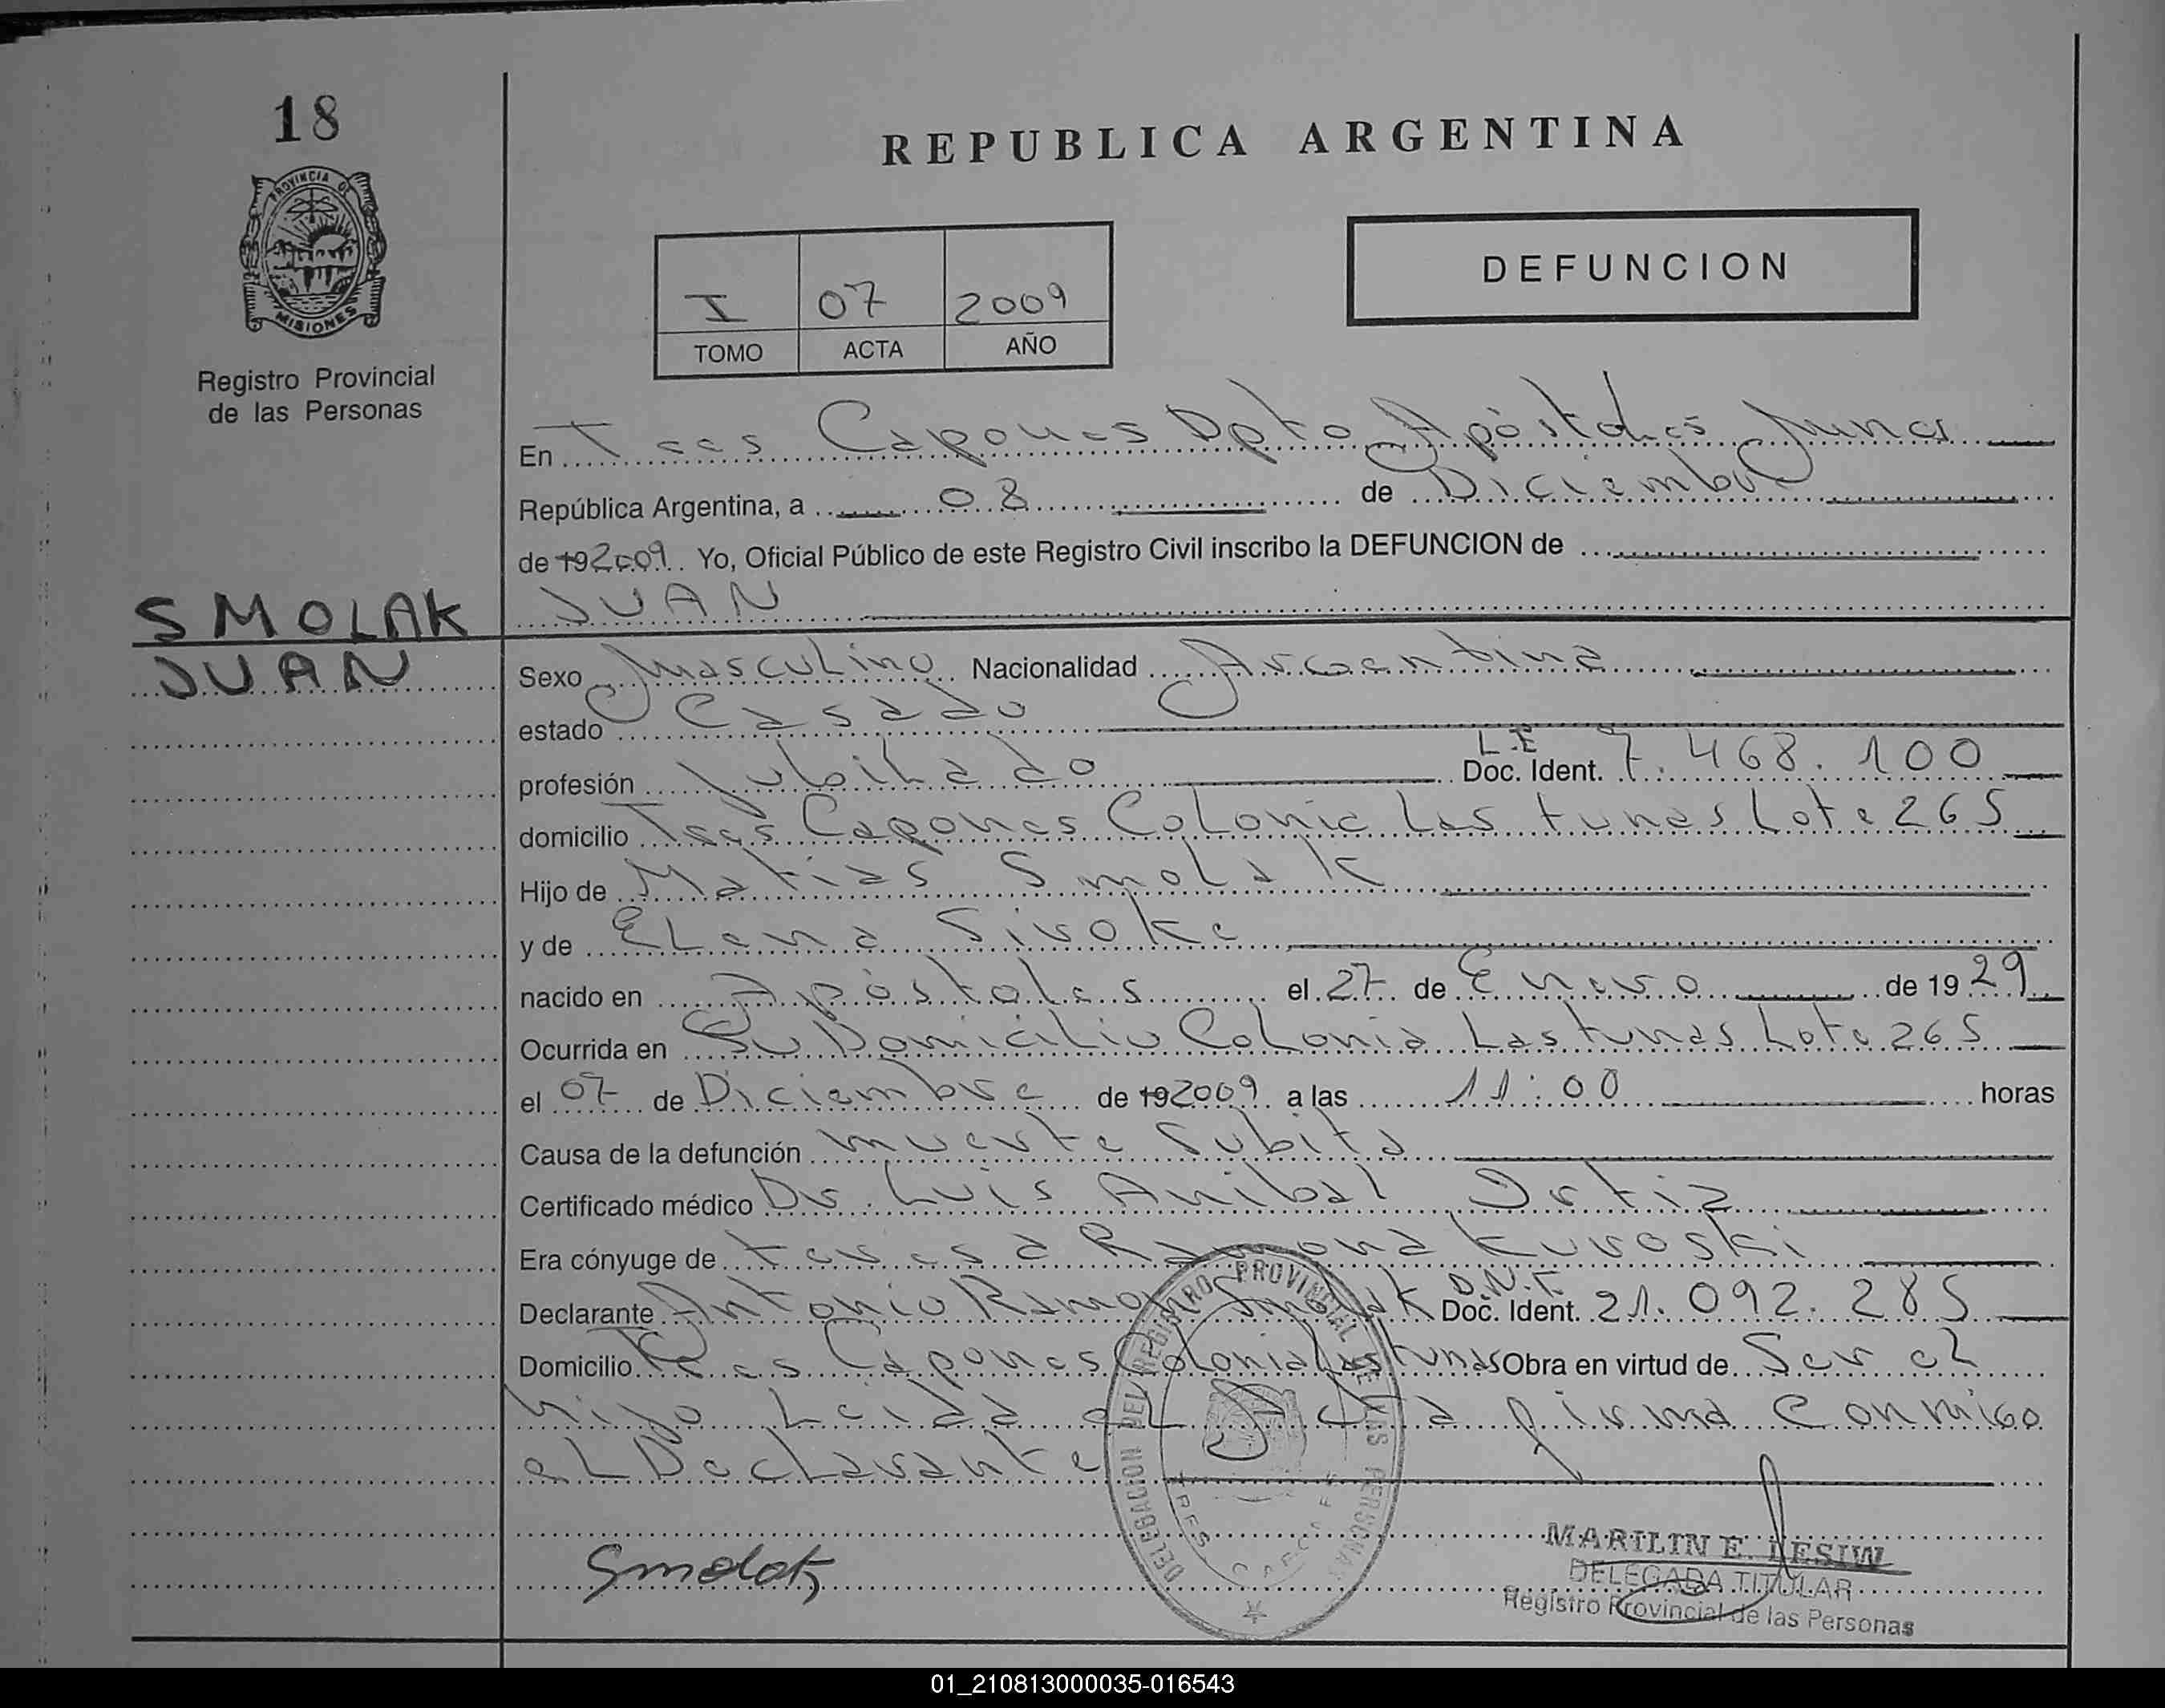 18
REPUBLICA ARGENTINA
PROVINCIA DE
MISIONES
Registro Provincial
de las Personas
DEFUNCION
I 07 2009
TOMO ACTA AÑO
En Tres Capones Dpto Apóstoles
República Argentina, a 08 de Diciembre
de 192009. Yo, Oficial Público de este Registro Civil inscribo la DEFUNCION de
SMOLAK
JUAN
JUAN
Sexo Masculino Nacionalidad Argentina
estado Casado
profesión Jubilado L.E Doc. Ident. 7.468.100
domicilio Tres Capones Colonia Las tunas Lote 265
Hijo de Matias Smolak
y de Elena Siroke
nacido en Apóstoles el 27 de Enero de 1929
Ocurrida en Su Domicilio Colonia Las tunas Lote 265
el 07 de Diciembre de 192009 a las 11:00 horas
Causa de la defunción muerte Subita
Certificado médico Dr. Luis Anibal Ortiz
Era cónyuge de teresa Ramona Kuroski
Declarante Antonio Ramon Smolak D.N.I. Doc. Ident. 21.092.285
Domicilio Tres Capones Colonia Las tunas Obra en virtud de Ser el
hijo Leida el Acta firma Conmigo
el Declarante
DELEGACION DEL REGISTRO PROVINCIAL DE LAS PERSONAS
TRES CAPONES
Smolak
MARILIN E. LESIW
DELEGADA TITULAR
Registro Provincial de las Personas
01_210813000035-016543